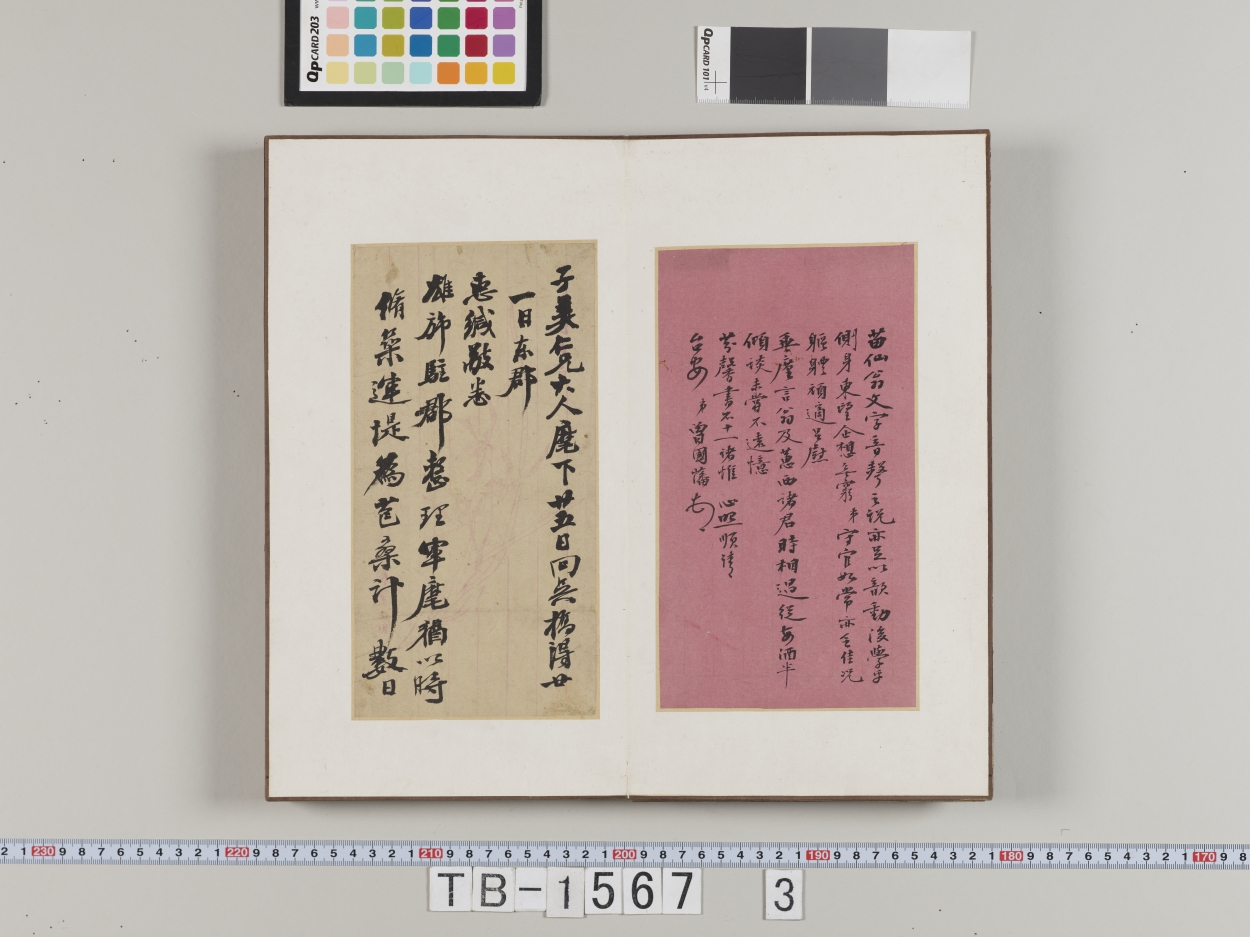 QpCARD 203
QpCARD 101
苗仙翁文字音聲之說亦足以歆動後學
側身東望企想無窮弟守官如常亦無佳況
軀體頑適足慰
垂廑言翁及蕙西諸君時相過從每酒半
傾談未嘗不遠憶
芳馨書不十一諸惟心照順請
台安弟曾國藩頓
子美仁兄大人麾下廿五日回吳橋得廿
一日東郡
惠緘敬悉
雄旆駐郡整理軍麾猶以時
脩築運堤為苞桑計數日
2 1 230 9 8 7 6 5 4 3 2 1 220 9 8 7 6 5 4 3 2 1 210 9 8 7 6 5 4 3 2 1 200 9 8 7 6 5 4 3 2 1 190 9 8 7 6 5 4 3 2 1 180 9 8 7 6 5 4 3 2 1 170 9 8
TB-1567 3